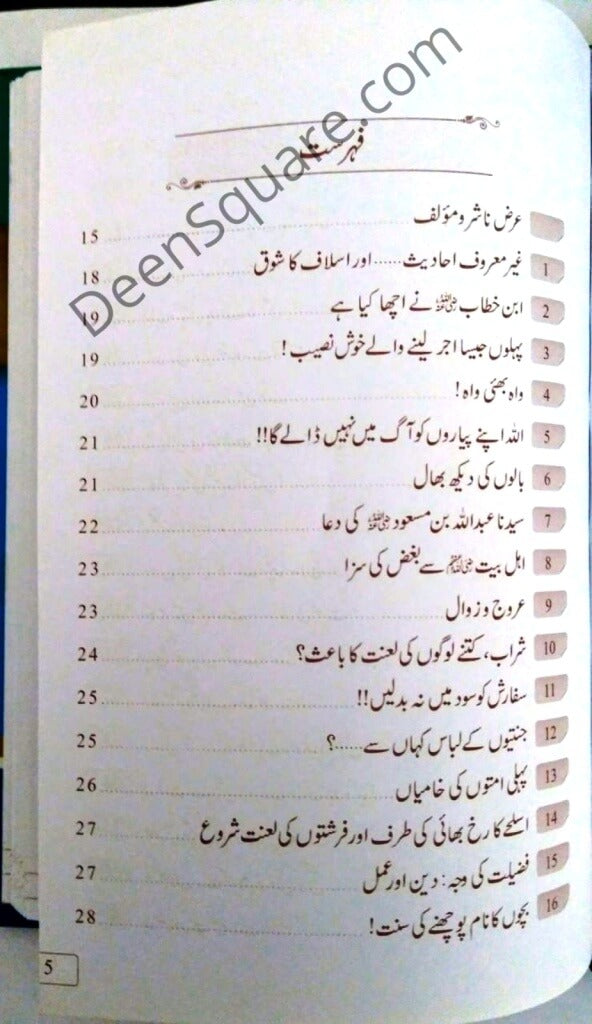 DeenSquare.com
فہرست
عرض ناشر و مؤلف 15
1 غیر معروف احادیث...... اور اسلاف کا شوق 18
2 ابن خطاب رضی اللہ عنہ نے اچھا کیا ہے 19
3 پہلوں جیسا اجر لینے والے خوش نصیب! 19
4 واہ بھئی واہ! 20
5 اللہ اپنے پیاروں کو آگ میں نہیں ڈالے گا!! 21
6 بالوں کی دیکھ بھال 21
7 سیدنا عبداللہ بن مسعود رضی اللہ عنہ کی دعا 22
8 اہل بیت رضی اللہ عنہم سے بغض کی سزا 23
9 عروج و زوال 23
10 شراب، کتنے لوگوں کی لعنت کا باعث؟ 24
11 سفارش کو سود میں نہ بدلیں!! 25
12 جنتیوں کے لباس کہاں سے.....؟ 25
13 پہلی امتوں کی خامیاں 26
14 اسلحے کا رخ بھائی کی طرف اور فرشتوں کی لعنت شروع 27
15 فضیلت کی وجہ: دین اور عمل 27
16 بچوں کا نام پوچھنے کی سنت! 28
5